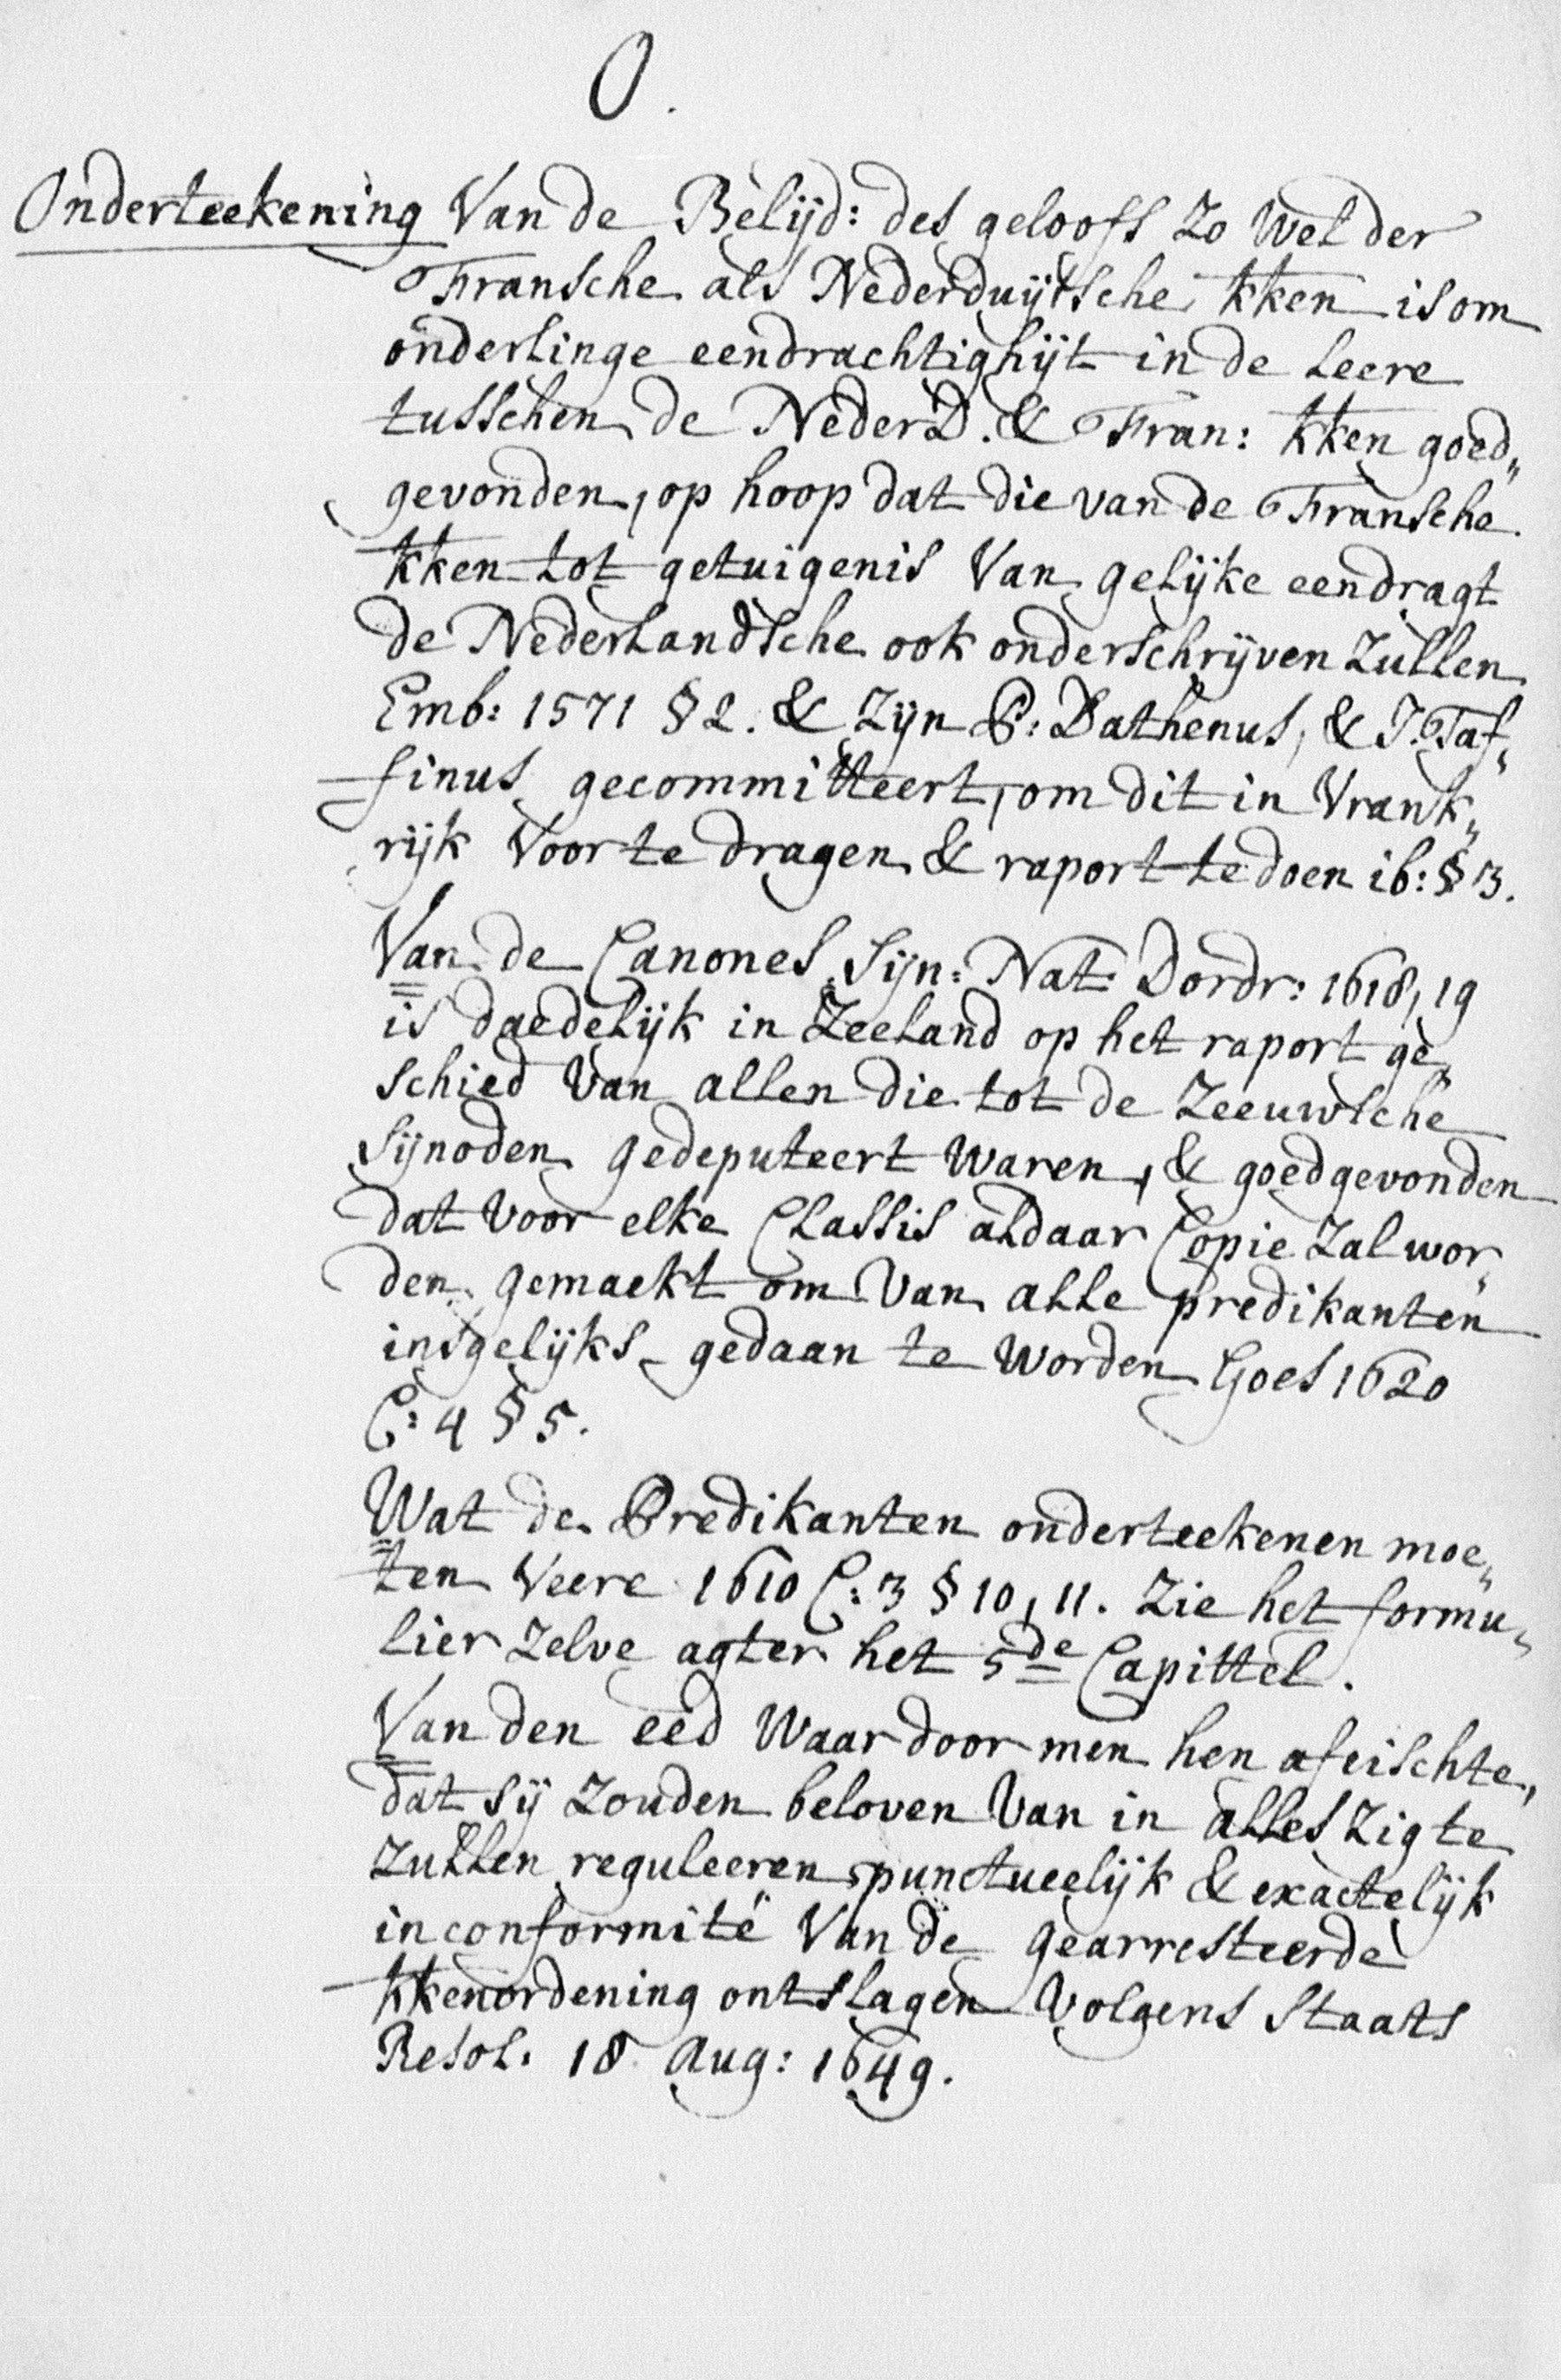 O.
Onderteekening Van de Belijd: des geloofs zo wel der
Fransche als Nederduijtsche kken is om
onderlinge eendrachtighijt in de Leere
tusschen de NederD. & Fran: kken goed„
gevonden, op hoop dat die van de Fransche
kken tot getuigenis Van gelijke eendragt
de Nederlandsche ook onderschrijven zullen
Emb: 1571 § 2. & zijn P: Dathenus, & J. Taf„
finus gecommitteert, om dit in Vrank„
rijk Voor te dragen & raport te doen ib: § 3.
Van de Canones Sijn: Nat: Dordr: 1618, 19
is daedelijk in Zeeland op het raport ge„
schied Van allen die tot de Zeeuwsche
Sijnoden gedeputeert waren, & goedgevonden
dat voor elke Classis aldaar Copie zal wor„
den gemaekt om Van alle predikanten
insgelijks gedaan te worden Goes 1620
C: 4 § 5.
Wat de Predikanten onderteekenen moe„
ten Veere 1610 C: 3 § 10, 11. Zie het formu„
lier zelve agter het 5de Capittel.
Van den eed waar door men hen afeischte,
dat sij zouden beloven Van in alles zig te
zullen reguleeren punctueelijk & exactelijk
in conformité Van de gearresteerde
kkenordening ontslagen volgens Staats
Resol. 18 Aug: 1649.